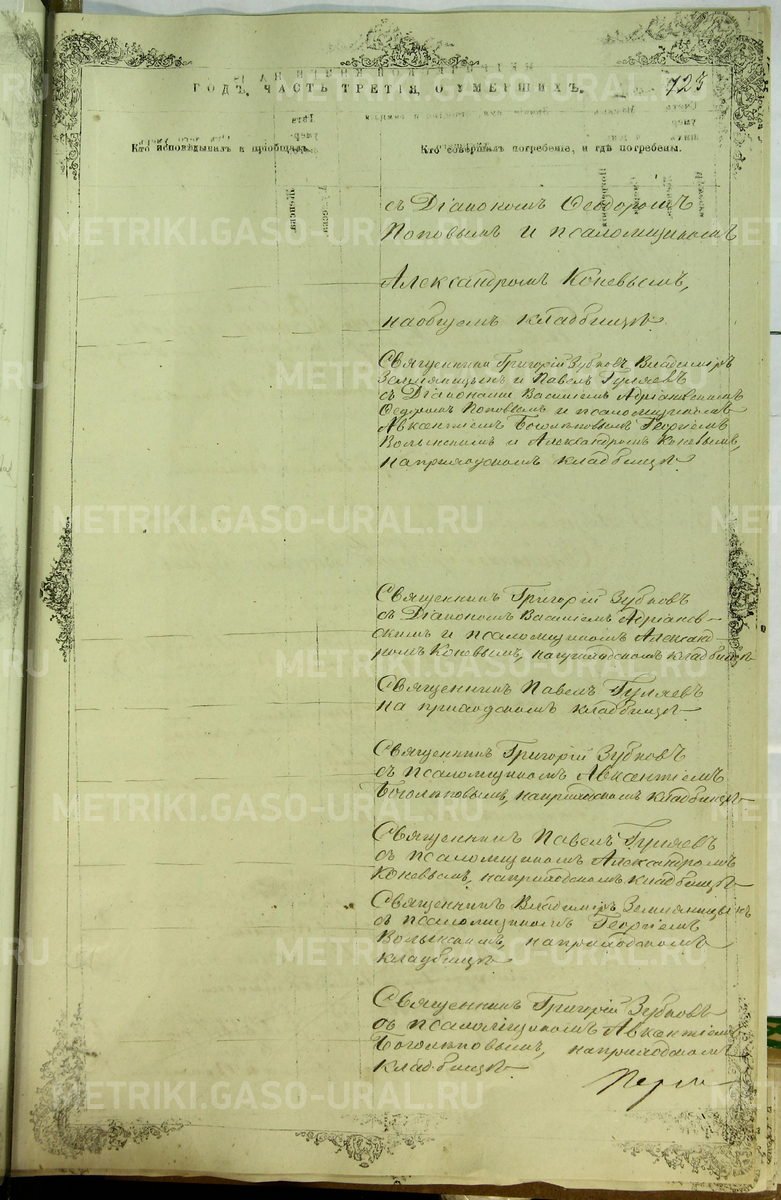 ГОДЪ, ЧАСТЬ ТРЕТІЯ, О УМЕРШИХЪ.
723
Кто исповѣдывалъ и пріобщалъ.
Кто совершалъ погребеніе, и гдѣ погребены.
съ Діакономъ Ѳеодоромъ
Поповымъ и псаломщикомъ
Александромъ Коневымъ,
на общемъ кладбищѣ.
Священники Григорій Зубковъ, Владиміръ
Земляницынъ и Павелъ Гуляевъ
съ Діаконами Василіемъ Адріановскимъ
Ѳедоромъ Поповымъ и псаломщиками
Авксентіемъ Боголѣповымъ Георгіемъ
Волынскимъ и Александромъ Коневымъ,
на приходскомъ кладбищѣ.
Священникъ Григорій Зубковъ
съ Діакономъ Василіемъ Адріанов-
скимъ и псаломщикомъ Александ-
ромъ Коневымъ, на приходскомъ кладбищѣ
Священникъ Павелъ Гуляевъ
на приходскомъ кладбищѣ
Священникъ Григорій Зубковъ
съ псаломщикомъ Авксентіемъ
Боголѣповымъ, на приходскомъ кладбищѣ
Священникъ Павелъ Гуляевъ
съ псаломщикомъ Александромъ
Коневымъ, на приходскомъ кладбищѣ
Священникъ Владиміръ Земляницынъ
съ псаломщикомъ Георгіемъ
Волынскимъ, на приходскомъ
кладбищѣ
Священникъ Григорій Зубковъ
съ псаломщикомъ Авксентіемъ
Боголѣповымъ, на приходскомъ
кладбищѣ
METRIKI.GASO-URAL.RU